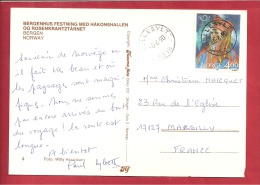 BERGENHUS FESTNING MED HÅKONSHALLEN
OG ROSENKRANTZTÅRNET
BERGEN
NORWAY
Souvenir de Norvège où
il fait beau et où
les paysages sont magni-
fiques. Nous sommes
pas encore arrivés au bout
du voyage! la route est
longue.
A bientôt
Paul
Foto: Willy Haraldsen
NORGE
400
Mme Christiane MARQUET
23 Rue de l'Eglise
17137 MARSILLY
FRANCE